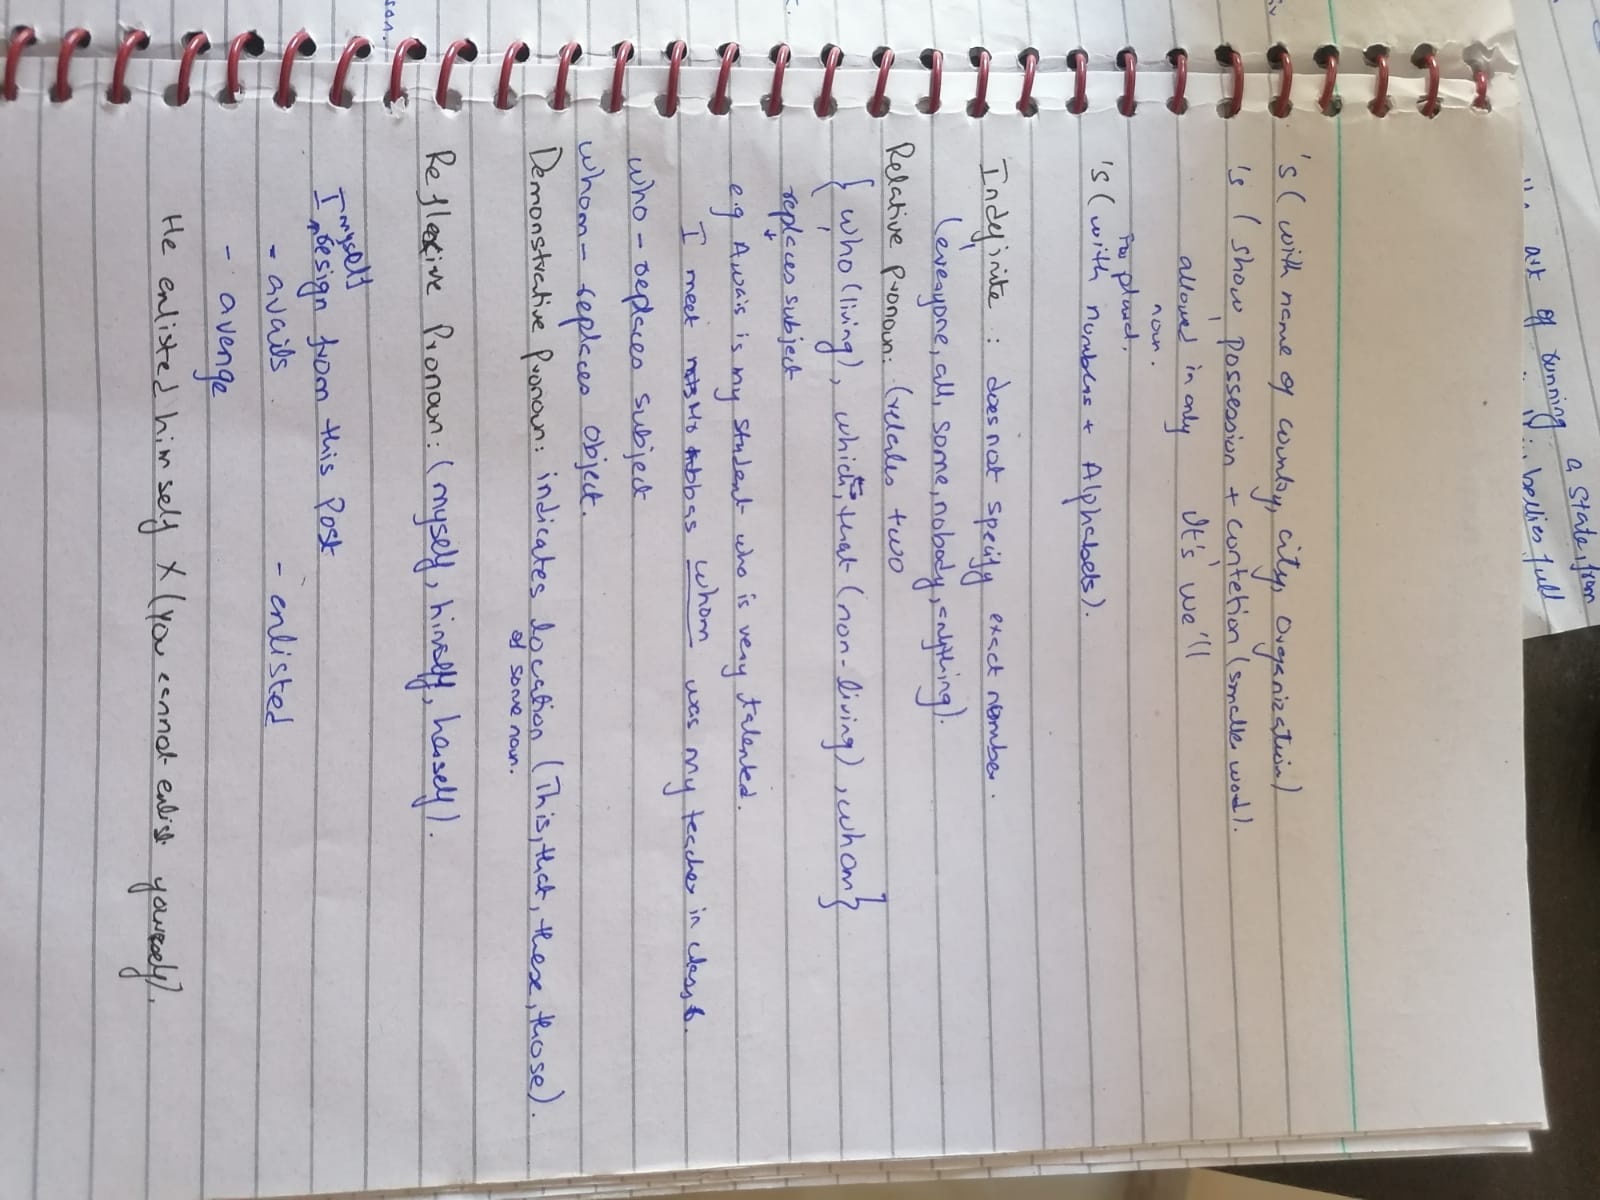 art of running a state, from
bellies full
's ( with name of country, city, Organization)
's ( show possession + contetion (smaller word).
allowed in only It's we'll
noun.
For plural.
's ( with numbers + Alphabets).
Indefinite : does not specify exact number.
(everyone, all, some, nobody, anything).
Relative pronoun: (relates two
{ who (living), which, that (non-living), whom}
replaces subject
e.g Awais is my student who is very talented.
I meet Mr Abbas whom was my teacher in class 6.
who - replaces subject
whom - replaces object.
Demonstrative Pronoun: indicates location (This, that, these, those).
of some noun.
Reflexive Pronoun: (myself, himself, herself).
myself
I resign from this Post
- avails - enlisted
- avenge
He enlisted himself X (you cannot enlist yourself).
son.